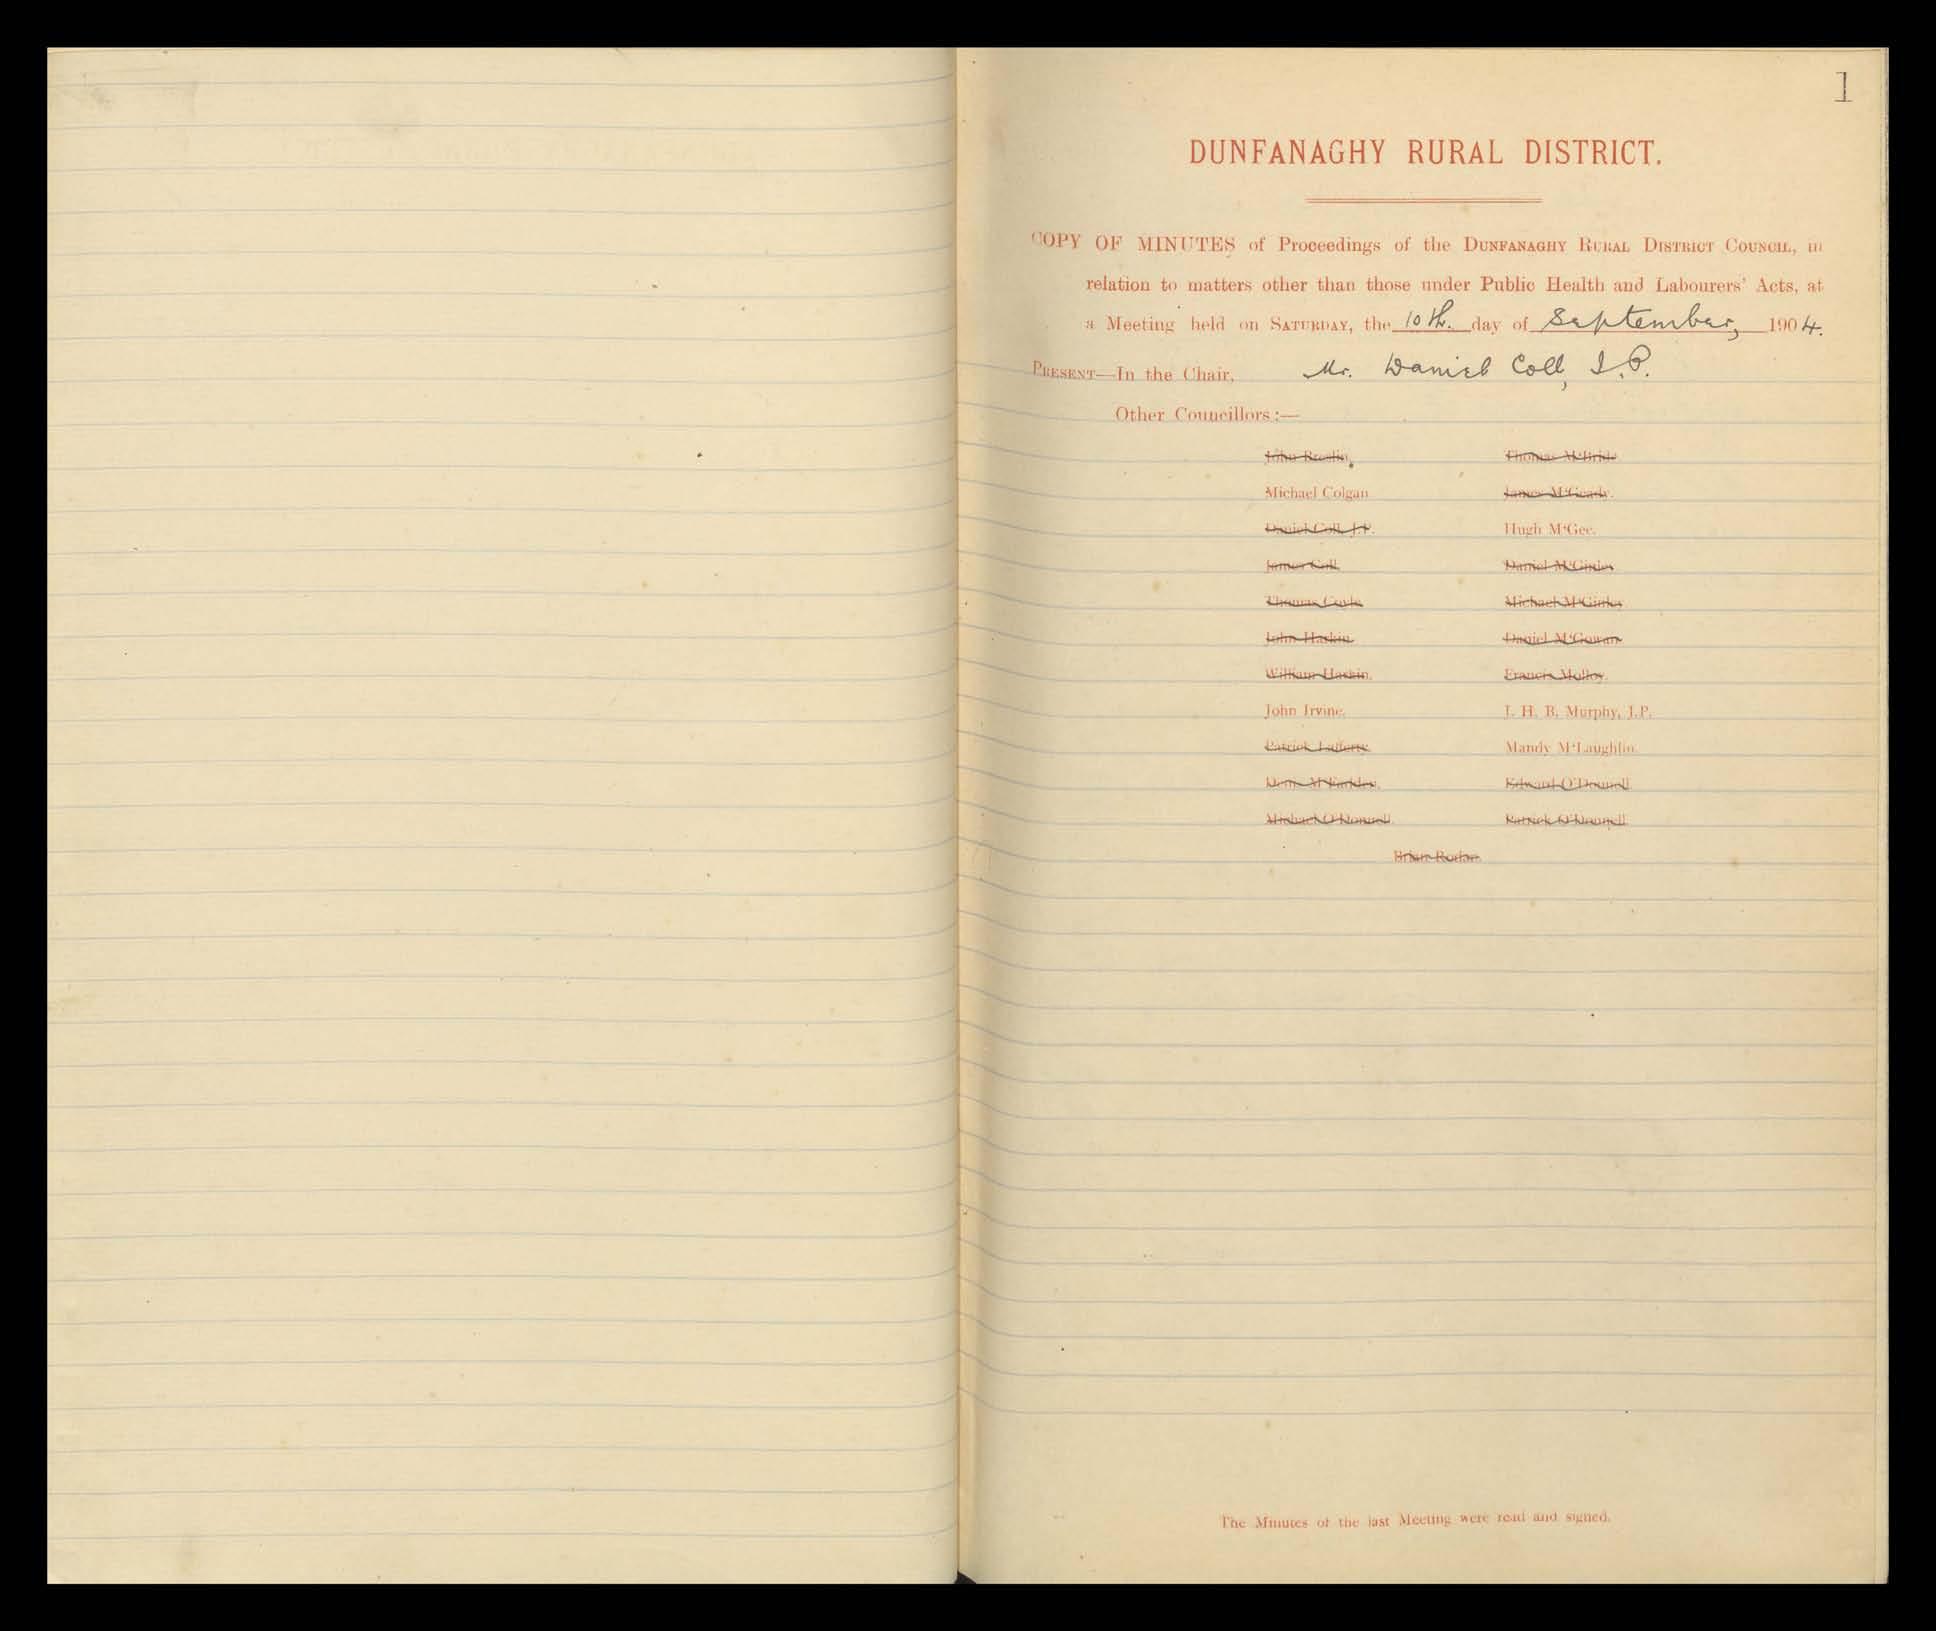 1
DUNFANAGHY RURAL DISTRICT.
COPY OF MINUTES of Proceedings of the DUNFANAGHY RURAL DISTRICT COUNCIL, in
relation to matters other than those under Public Health and Labourers' Acts, at
a Meeting held on SATURDAY, the 10th. day of September, 1904.
PRESENT—In the Chair, Mr. Daniel Coll, J.P.
Other Councillors:—
John Breslin. Thomas M'Bride.
Michael Colgan James M'Geady.
Daniel Coll, J.P. Hugh M'Gee.
James Coll. Daniel M'Ginley
Thomas Coyle. Michael M'Ginley
John Harkin. Daniel M'Gowan
William Harkin. Francis Molloy.
John Irvine. J. H. B. Murphy, J.P.
Patrick Lafferty. Mandy M'Laughlin.
Denis M'Fadden. Edward O'Donnell
Michael O'Donnell. Patrick O'Donnell
Brian Rodan.
The Minutes of the last Meeting were read and signed.